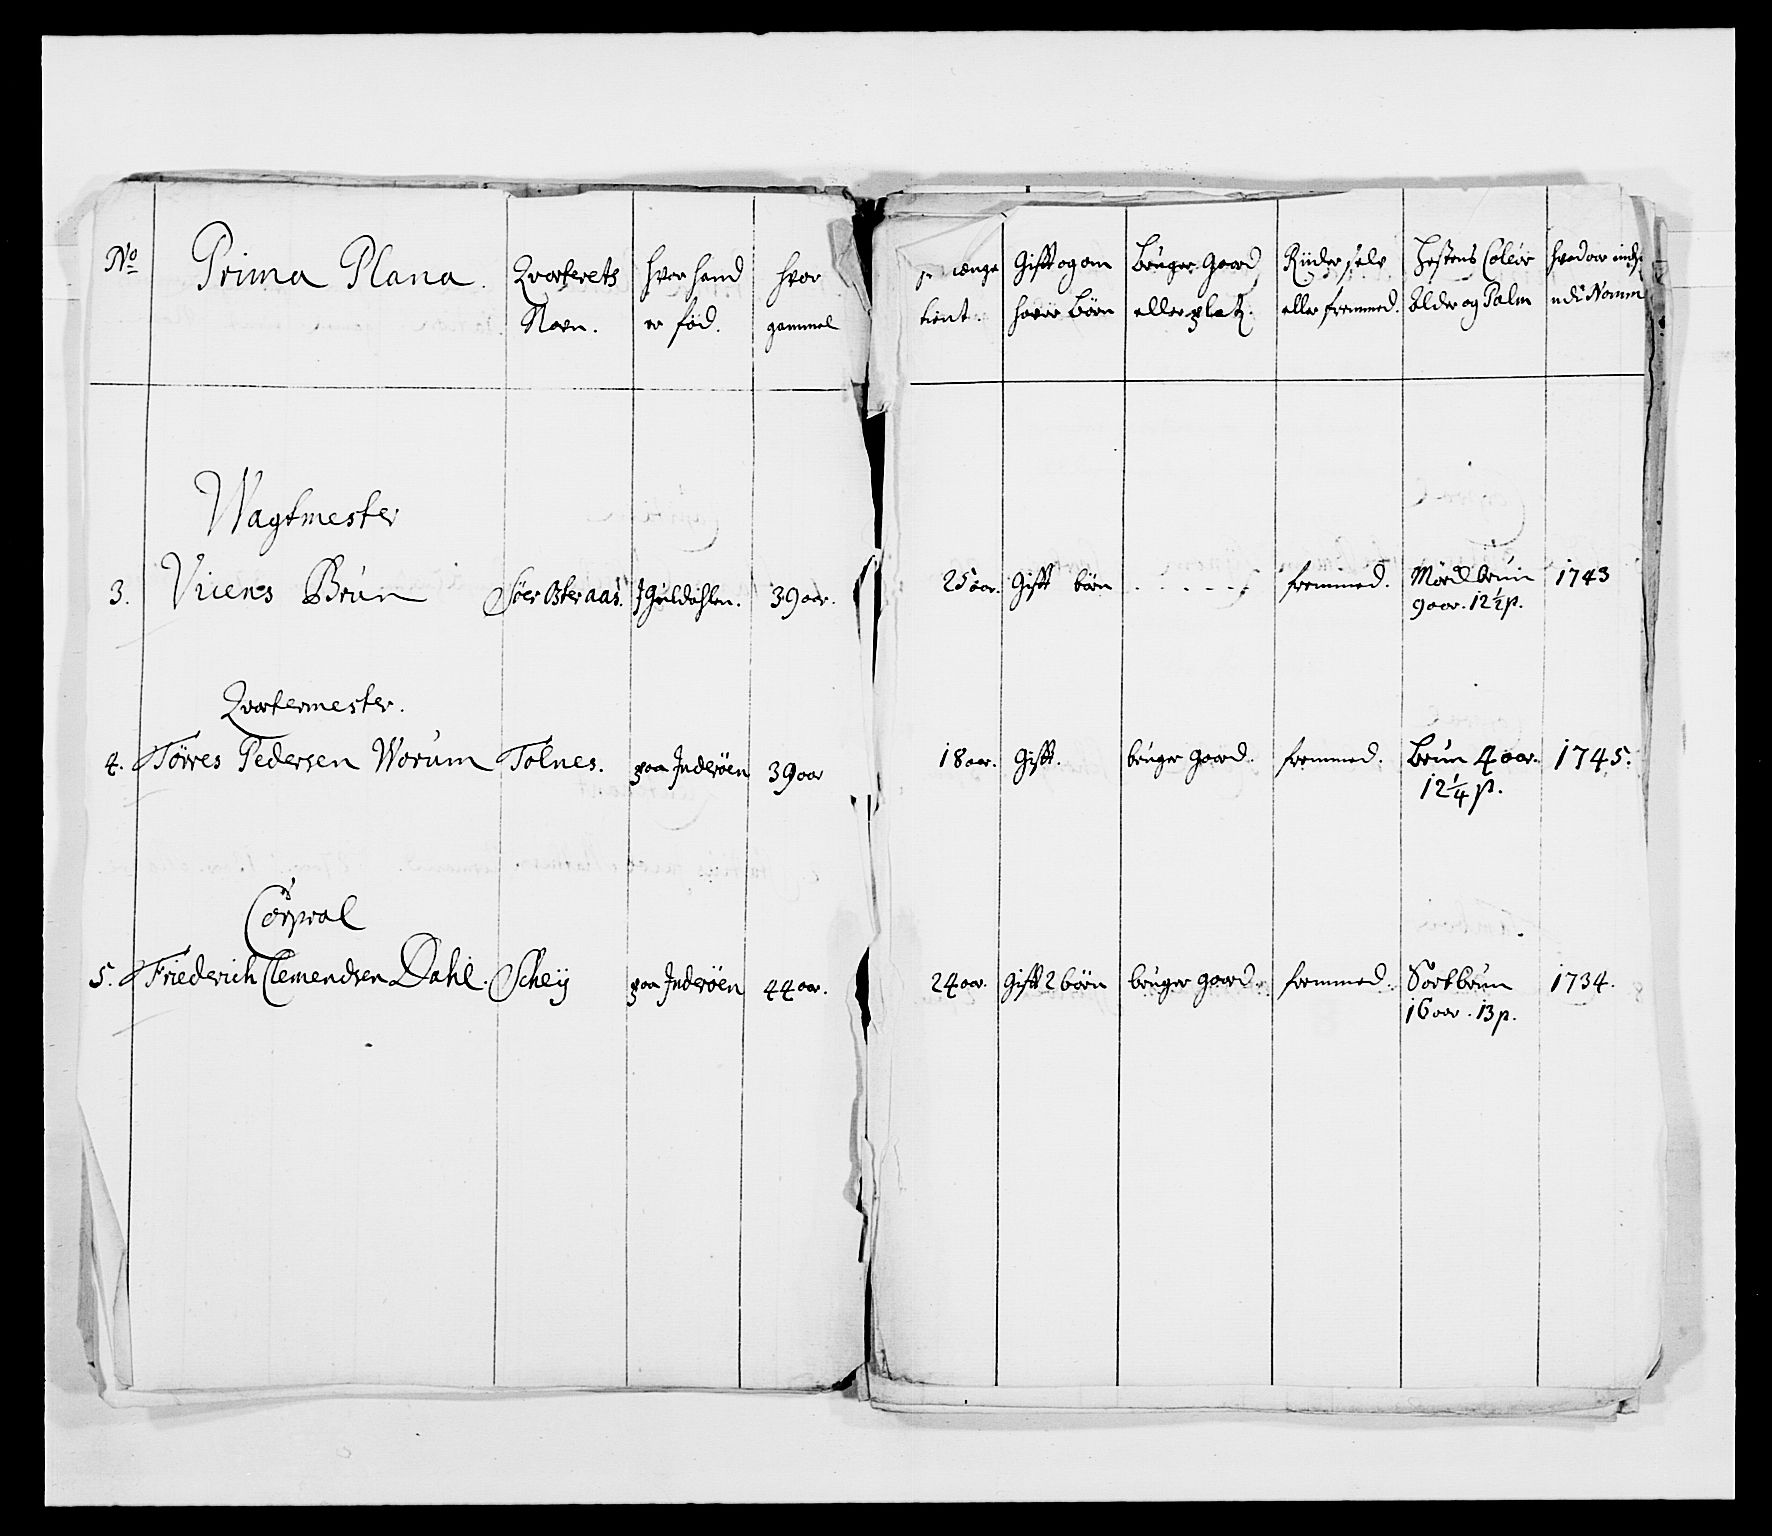 No
Prima Plana.
Qvarterets
Navn.
hvor hand
er fød.
hvor
gammel
længe
tient.
Gifft og om
haver Børn
bruger gaard
eller platz.
Riider selv
eller fremmed.
Hestens Coleur
Alder og Palm
hvad aar inds
udi Numm
Wagtmester
3. Viiens Brun Søer Osteraas. J Guldahlen. 39 aar. 25 aar. Gifft børn . . . . . fremmed. Mörckbrun 1743
9 aar. 12½ p.
Qvartermester.
4. Törres Pedersen Worum Tolnes. paa Inderöen 39 aar 18 aar. Gifft. bruger gaard. fremmed. brun 4 aar. 1745.
12¼ p.
Corporal
5. Friederich Clemendsen Dahl. Scheij paa Inderöen 44 aar. 24 aar. Gifft 2 börn bruger gaard. fremmed. Sortbrun 1734.
16 aar. 13 p.